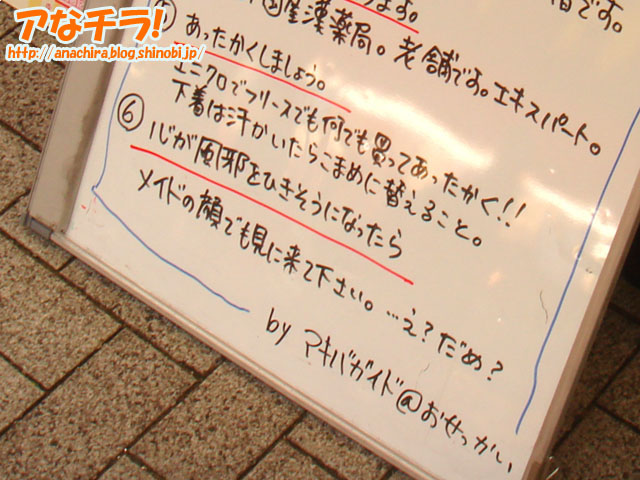 アなチラ!
http://anachira.blog.shinobi.jp/
ます。
です。
国産漢薬局。老舗です。エキスパート。
⑤
あったかくしましょう。
ユニクロでフリースでも何でも買ってあったかく!!
下着は汗かいたらこまめに替えること。
⑥ 心が風邪をひきそうになったら
メイドの顔でも見に来て下さい。…え?だめ?
by アキバガイド@おせっかい